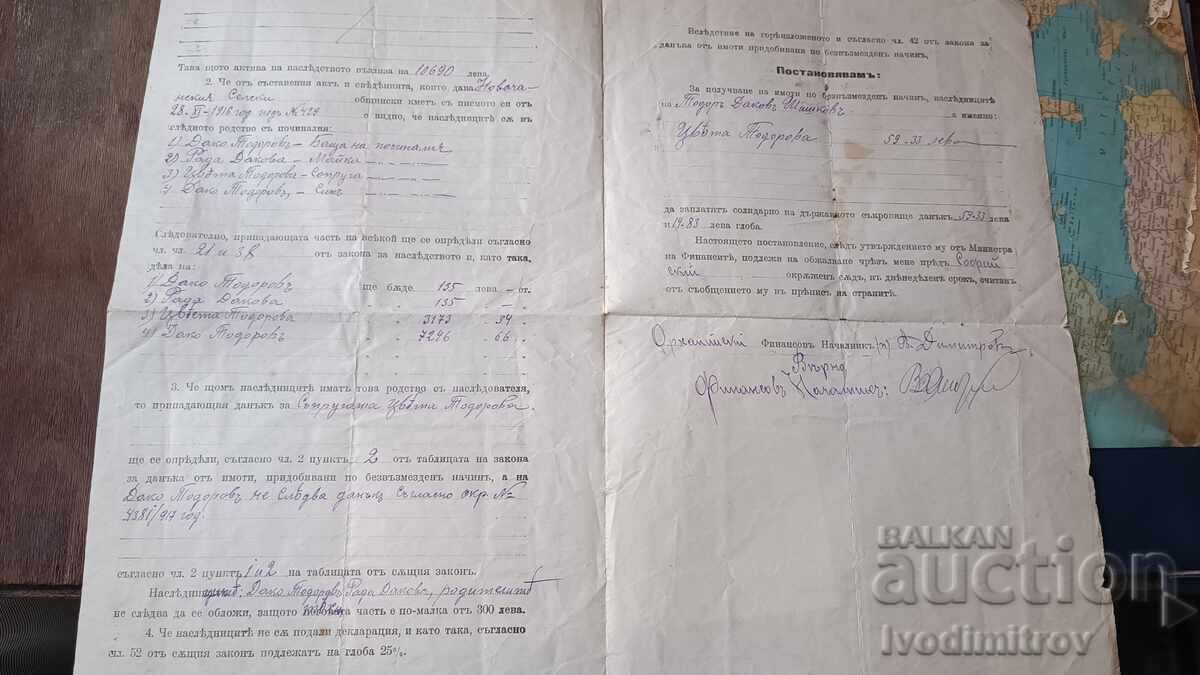 Така щото актива на наследството възлиза на 10690 лева.
2. Че от съставения актъ и сведенията, които дава Новоча-
нския Селски общински кметъ съ писмото си от
28. VI - 1916 год подъ № 429 е видно, че наследниците сѫ въ
следното родство съ починалия:
1) Дако Тодоровъ - Баща на починалъ
2) Рада Дакова - Майка
3) Цвѣта Тодорова - Съпруга
4) Дако Тодоровъ, - Синъ
Следователно, припадающата часть на всѣкой ще се опредѣли съгласно
чл. чл. 21 и 38 от закона за наследството и, като така,
дѣла на:
1) Дако Тодоровъ ще бѫде 135 лева — ст.
2) Рада Дакова " " 135 " — "
3) Цвѣта Тодорова " " 3173 " 34 "
4) Дако Тодоровъ " " 7246 " 66 "
3. Че щомъ наследниците иматъ това родство съ наследователя,
то припадающия данъкъ за Съпругата Цвѣта Тодорова.
ще се опредѣли, съгласно чл. 2 пунктъ 2 отъ таблицата на закона
за данъка от имоти, придобивани по безвъзмезден начин, а на
Дако Тодоровъ не следва данъкъ съгласно окр. №
4381/917 год.
съгласно чл. 2 пунктъ 1 и 2 на таблицата от сѫщия законъ.
Дако Тодоровъ, Рада Дакова, родителите
не следва да се обложи, защото часть е по-малка от 300 лева.
4. Че наследниците не сѫ подали декларация, и като така, съгласно
чл. 52 от сѫщия законъ подлежатъ на глоба 25%.
Вследствие на горѣизложеното и съгласно чл. 42 от закона за
данъка отъ имоти придобивани по безвъзмезден начин,
Постановявамъ:
За получаване на имоти по безвъзмезден начин, наследниците
на Тодоръ Даковъ Шишковъ а именно:
Цвѣта Тодорова 59-33 лева
да заплатятъ солидарно на държавното съкровище данъкъ 59-33 лева
и 14-83 лева глоба.
Настоящето постановление, следъ утвърждението му от Министра
на Финансите, подлежи на обжалване чрѣз мене предъ Софий
ский окрѫженъ сѫдъ, въ двенеделен срокъ, считан
отъ съобщението му въ прѣпис на странитѣ.
Орханийский Финансовъ Началникъ: (п) А. Димитровъ
Вѣрно
Финансовъ Началникъ:
BALKAN
auction
Ivodimitrov